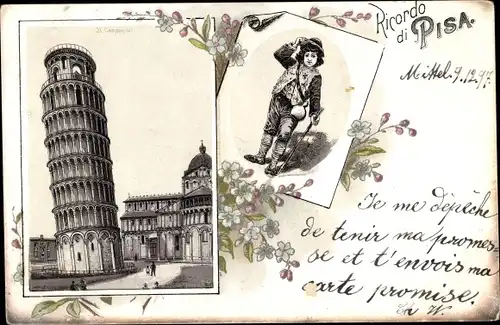 Il Campanile
Ricordo
di PISA.
Mittel. 9.12.97.
Je me dépêche
de tenir ma promes-
se et t'envois ma
carte promise.
W.